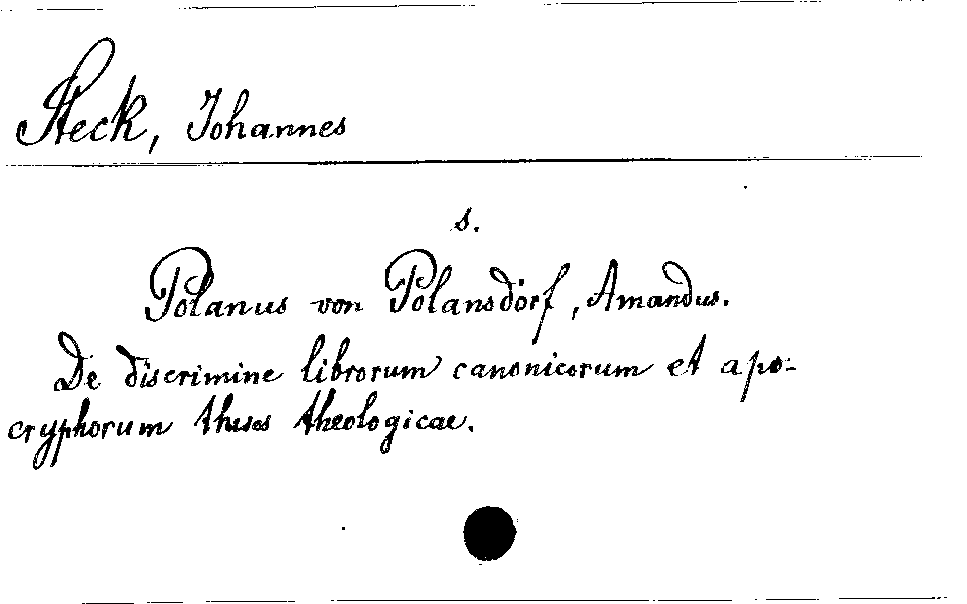 Steck, Johannes
s.
Polanus von Polansdorf, Amandus.
De discrimine librorum canonicorum et apo-
cryphorum theses theologicae.